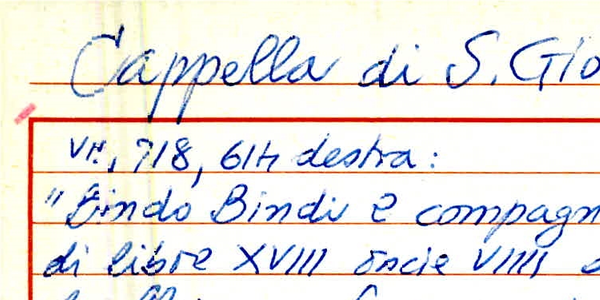 Cappella di S. Gio
VH, 718, 61h destra:
"Bindo Bindi e compagn
di libre XVIII oncie VIIII